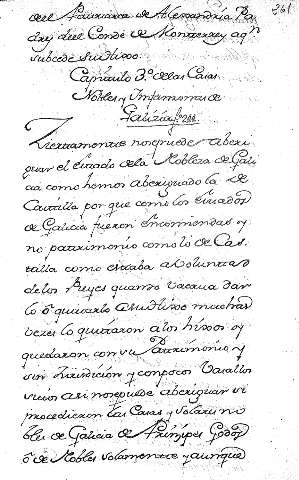 261
del Patriarca de Alexandria Pa
dre del Conde de Monterrey aqn
subcede su hixo.
Capitulo 3º de las Casas
Nobles y Infanzonas de
Galizia
Ziertamente no se puede aberi
guar el estado de la Nobleza de Gali
cia como hemos aberiguado la de
Castilla por que como los Estados
de Galicia fueron Encomiendas y
no patrimonio como lo de Cas
tilla como estaba a Voluntad
de los Reyes quando vacaua dar
lo ô quitarlo a su hixo muchas
vezes lo quitaron a los hixos y
quedaron con su Patrimonio y
sin Jurisdicion y con pocos Vasallos
asi no se puede aberiguar si
procedieron las Casas y Solares no
bles de Galicia de Prinzipes Godos
ô de Nobles solamente y aunque